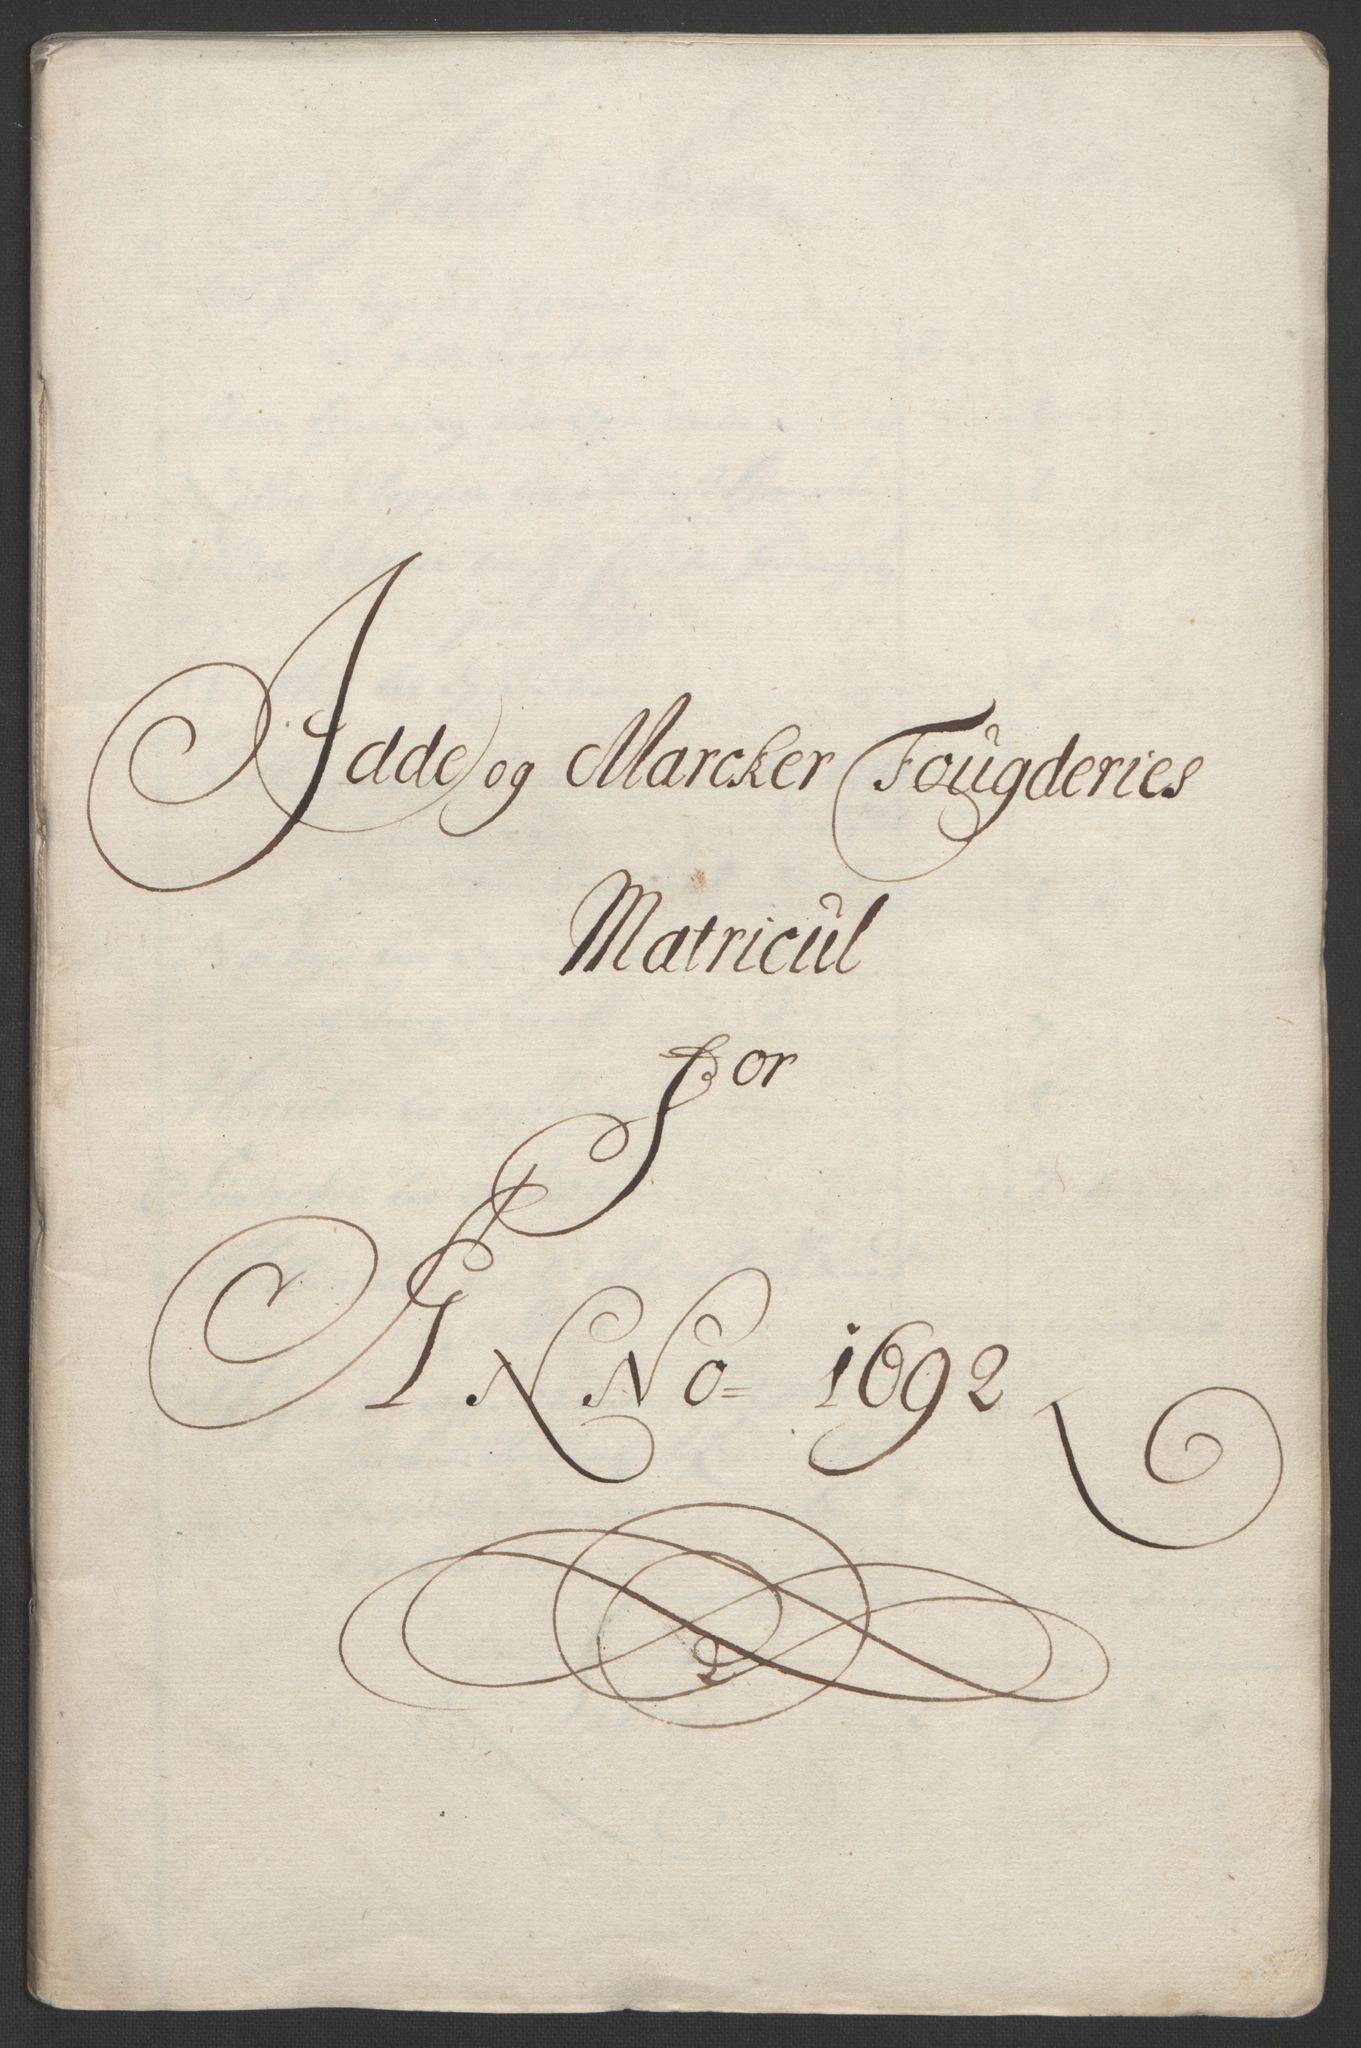 Idde og Marcker Fougderies
Matricul
for
ANNo= 1692